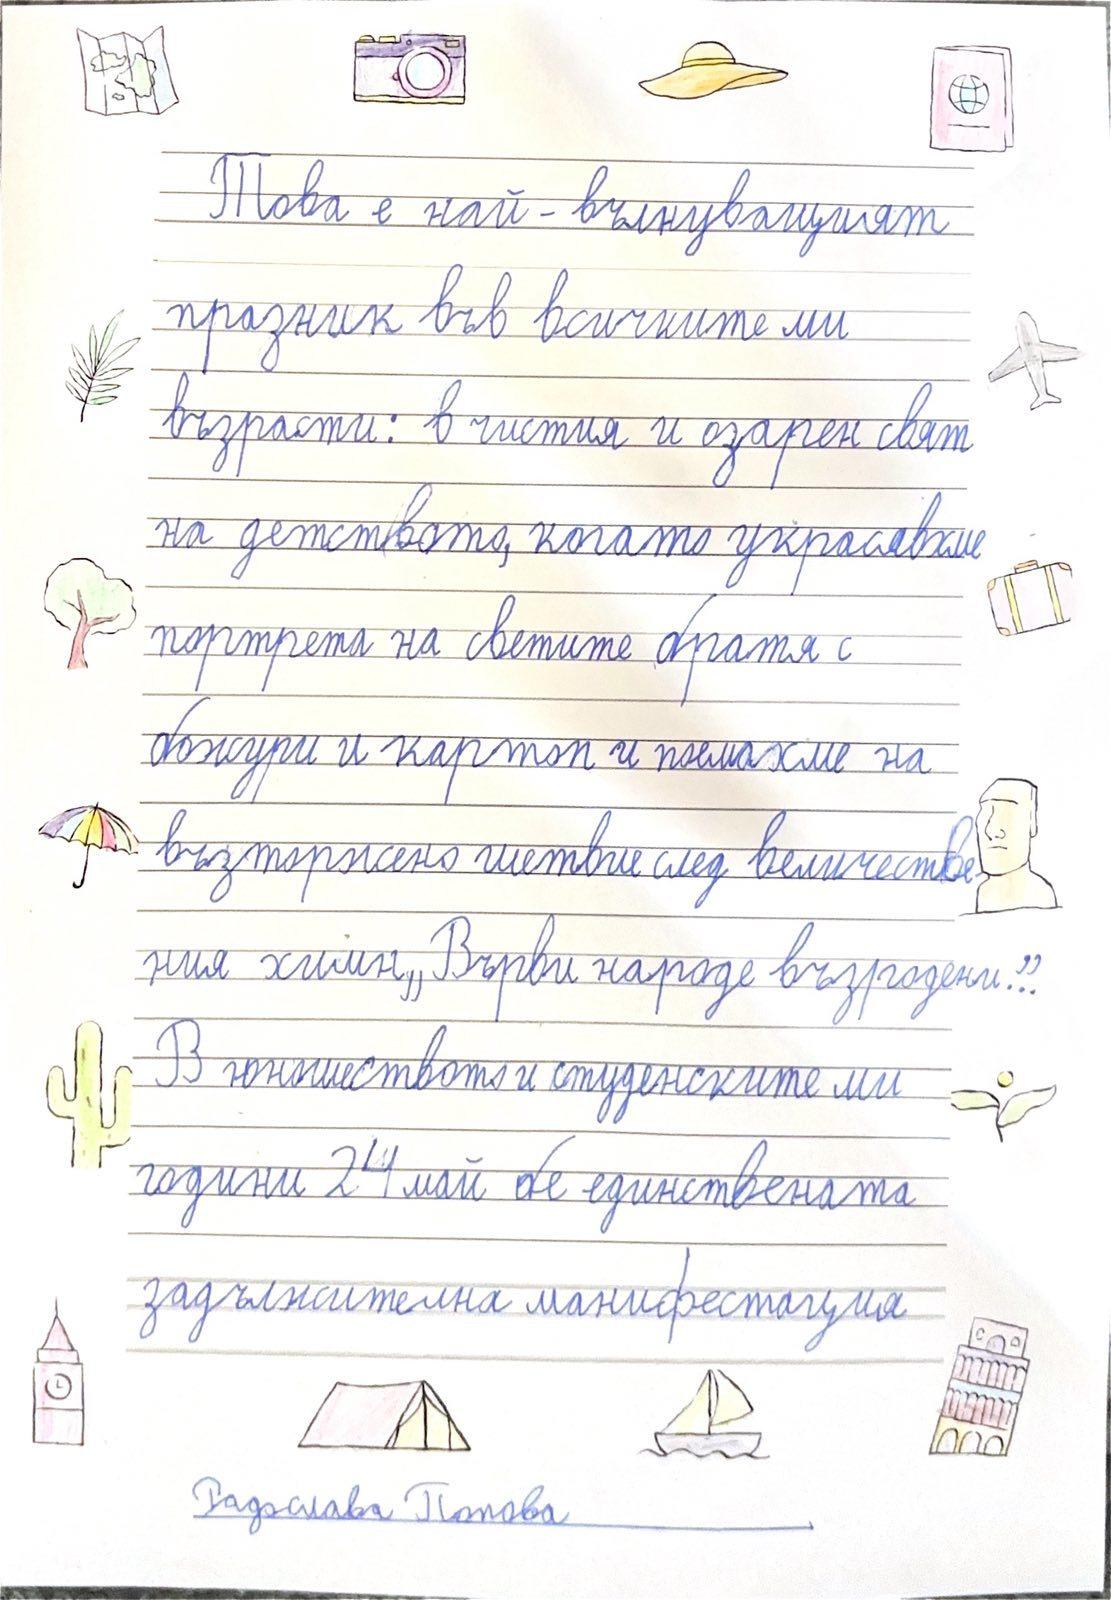 Това е най-вълнуващият
празник във всичките ми
възрасти: в чистия и озарен свят
на детството, когато украсявахме
портрета на светите братя с
божури и картоп и поемахме на
възторжено шетвие след величестве-
ния химн„Върви народе възродени..”
В юношеството и студенските ми
години 24 май бе единствената
задължителна манифестация
Радослава Попова